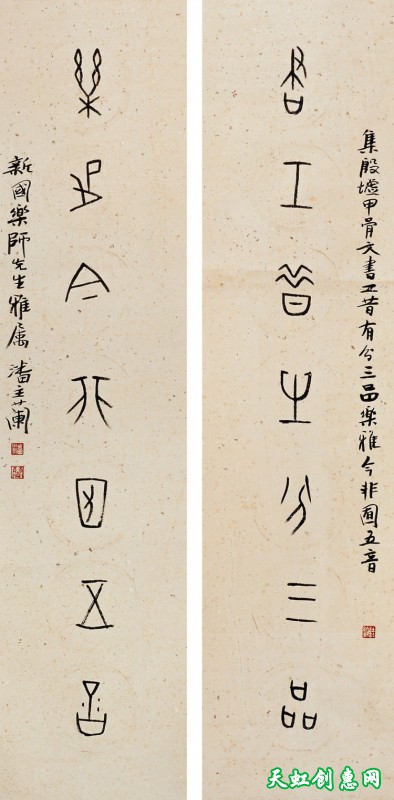 集殷墟甲骨文書工昔有分三品樂雅今非囿五音
書工昔有分三品
樂雅今非囿五音
新國樂師先生雅属 潘主蘭
天虹创惠网